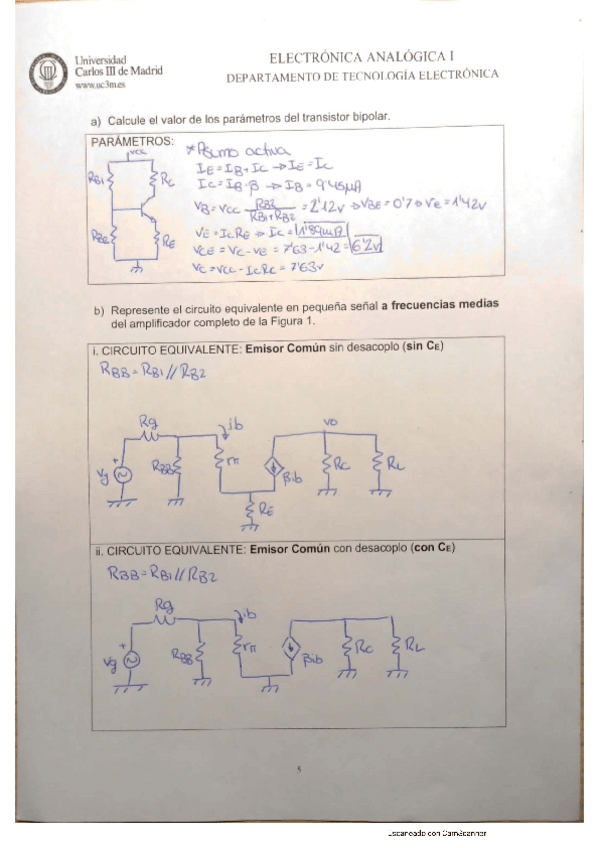 Universidad
Carlos III de Madrid
www.uc3m.es
ELECTRÓNICA ANALÓGICA I
DEPARTAMENTO DE TECNOLOGÍA ELECTRÓNICA
a) Calcule el valor de los parámetros del transistor bipolar.
PARÁMETROS:
VCC
RB1
RC
RB2
RE
*Asumo activa
IE = IB + IC → IE = IC
IC = IB·β → IB = 9'45μA
VB = VCC RB2/RB1+RB2 = 2'12V → VBE = 0'7 → VE = 1'42V
VE = ICRE → IC = 1'89mA
VCE = VC - VE = 7'63 - 1'42 = 6'2V
VC = VCC - ICRC = 7'63V
b) Represente el circuito equivalente en pequeña señal a frecuencias medias
del amplificador completo de la Figura 1.
i. CIRCUITO EQUIVALENTE: Emisor Común sin desacoplo (sin CE)
RBB = RB1 // RB2
Rg
ib
VO
Vg
RBB
rπ
βib
RC
RL
RE
ii. CIRCUITO EQUIVALENTE: Emisor Común con desacoplo (con CE)
RBB = RB1 // RB2
Rg
ib
Vg
RBB
rπ
βib
RC
RL
5
Escaneado con CamScanner